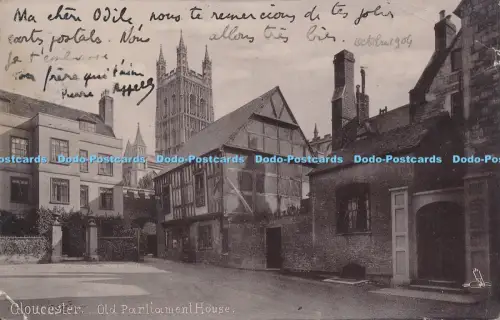 Ma chère Odile, nous te remercions de tes jolies
cartes postales. Nous
allons très bien.
octobre 1904
Je t'embrasse
ton frère qui t'aime
Pierre
Dodo-Postcards Dodo-Postcards Dodo-Postcards Dodo-Postcards Dodo-Postcards
Gloucester. Old Parliament House.